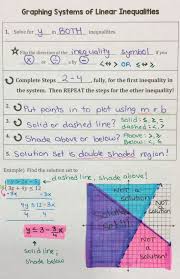 Graphing Systems of Linear Inequalities
1. Solve for y in BOTH inequalities.
Flip the direction of the inequality symbol if you
< ↔ > OR ≤ ↔ ≥
Complete Steps 2-4, fully, for the first inequality in
the system. Then REPEAT the steps for the other inequality!
2. Put points in to plot using m & b
3. Solid or dashed line?
Solid: ≤, ≥
dashed: <, >
4. Shade above or below?
Above: >, ≥
Below: <, ≤
5. Solution set is double shaded region!
Example) Find the solution set to
dashed line, shade above!
3x + 4y ≤ 12
-3x -3x
4y ≤ 12 - 3x
4 4
y ≤ 3 - 3/4 x
solid line,
shade below
NOT a
solution
Not
a
solution
Solution!
NOT a
solution